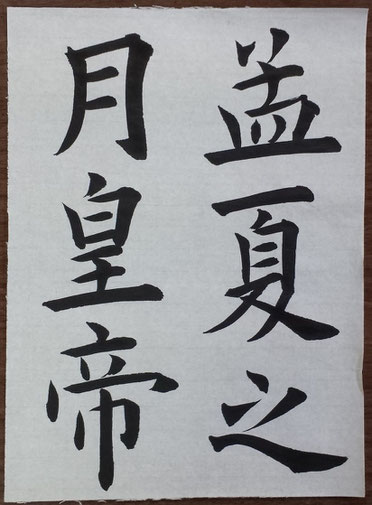 孟夏之
月皇帝